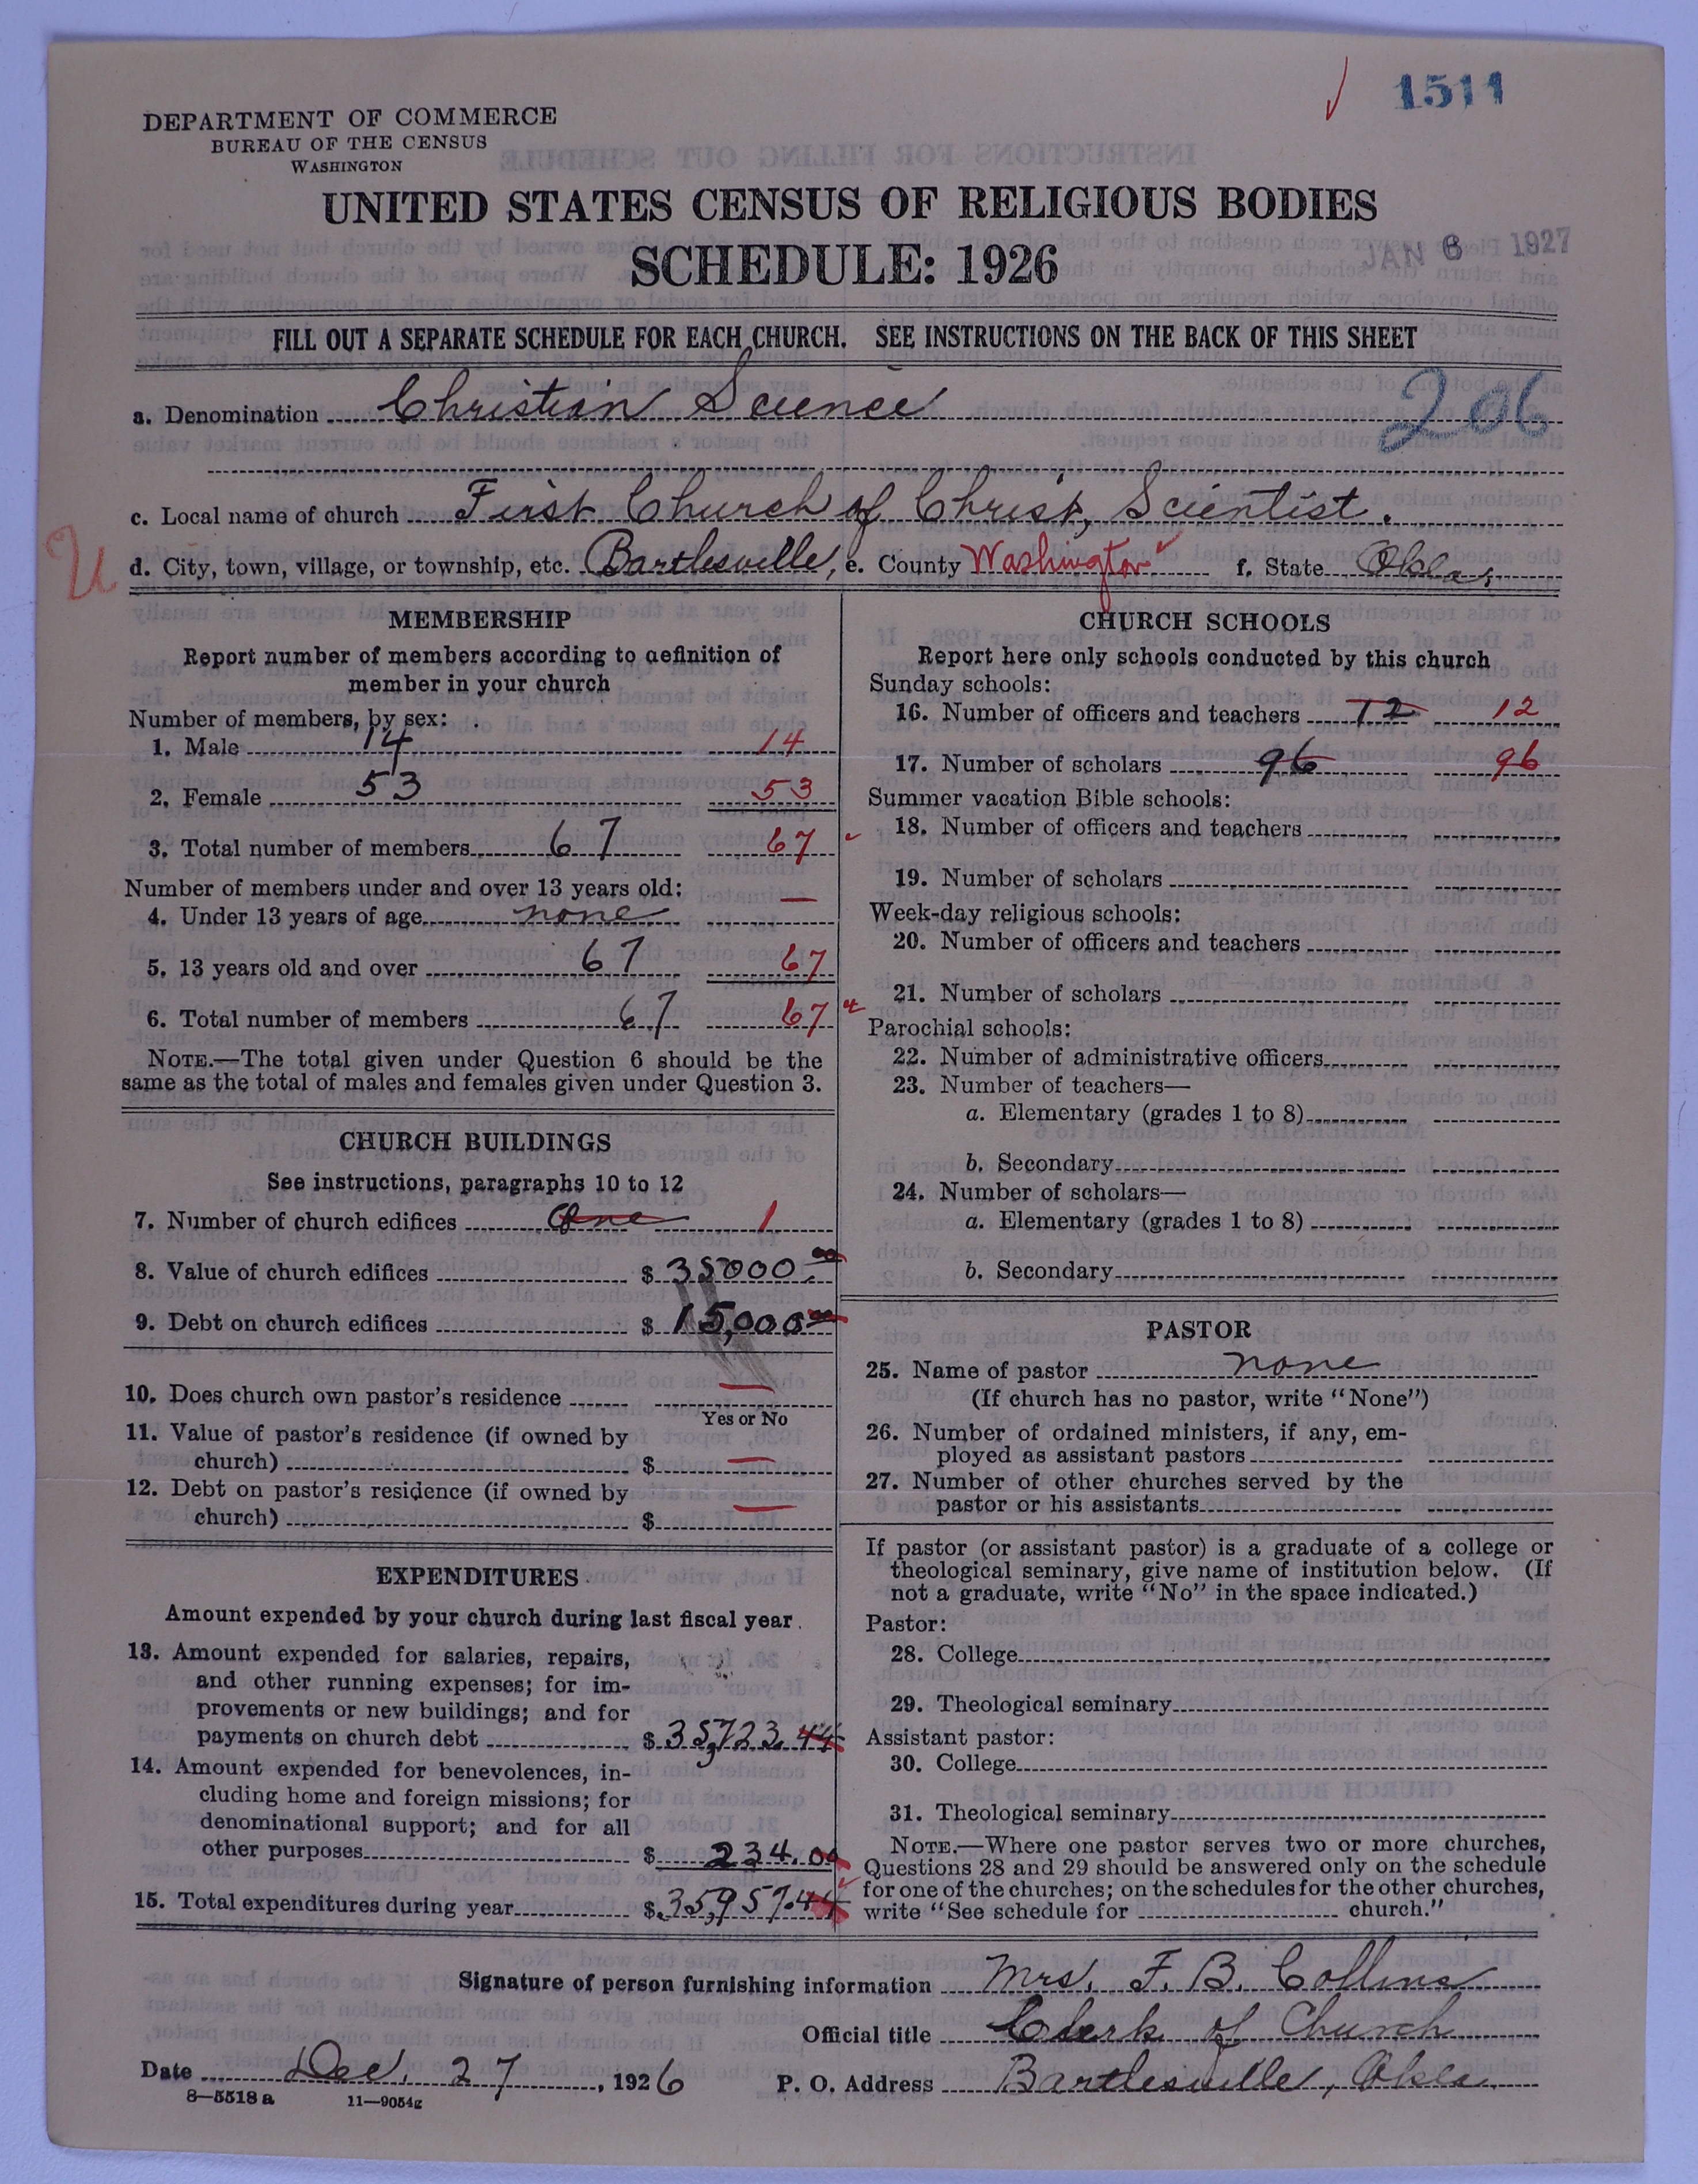 1511
DEPARTMENT OF COMMERCE
BUREAU OF THE CENSUS
WASHINGTON
UNITED STATES CENSUS OF RELIGIOUS BODIES
SCHEDULE: 1926
JAN 6 1927
FILL OUT A SEPARATE SCHEDULE FOR EACH CHURCH. SEE INSTRUCTIONS ON THE BACK OF THIS SHEET
a. Denomination Christian Science
206
c. Local name of church First Church of Christ, Scientist.
U
d. City, town, village, or township, etc. Bartlesville, e. County Washington f. State Okla.
MEMBERSHIP
Report number of members according to definition of
member in your church
Number of members, by sex:
1. Male 14 14
2. Female 53 53
3. Total number of members 67 67
Number of members under and over 13 years old:
4. Under 13 years of age none —
5. 13 years old and over 67 67
6. Total number of members 67 67
NOTE.—The total given under Question 6 should be the
same as the total of males and females given under Question 3.
CHURCH BUILDINGS
See instructions, paragraphs 10 to 12
7. Number of church edifices One 1
8. Value of church edifices $ 35000.00
9. Debt on church edifices $ 15,000.00
10. Does church own pastor's residence —
Yes or No
11. Value of pastor's residence (if owned by
church) $ —
12. Debt on pastor's residence (if owned by
church) $ —
EXPENDITURES
Amount expended by your church during last fiscal year
13. Amount expended for salaries, repairs,
and other running expenses; for im-
provements or new buildings; and for
payments on church debt $ 35,723.44
14. Amount expended for benevolences, in-
cluding home and foreign missions; for
denominational support; and for all
other purposes $ 234.00
15. Total expenditures during year $ 35,957.44
CHURCH SCHOOLS
Report here only schools conducted by this church
Sunday schools:
16. Number of officers and teachers 12 12
17. Number of scholars 96 96
Summer vacation Bible schools:
18. Number of officers and teachers
19. Number of scholars
Week-day religious schools:
20. Number of officers and teachers
21. Number of scholars
Parochial schools:
22. Number of administrative officers
23. Number of teachers—
a. Elementary (grades 1 to 8)
b. Secondary
24. Number of scholars—
a. Elementary (grades 1 to 8)
b. Secondary
PASTOR
25. Name of pastor none
(If church has no pastor, write "None")
26. Number of ordained ministers, if any, em-
ployed as assistant pastors
27. Number of other churches served by the
pastor or his assistants
If pastor (or assistant pastor) is a graduate of a college or
theological seminary, give name of institution below. (If
not a graduate, write "No" in the space indicated.)
Pastor:
28. College
29. Theological seminary
Assistant pastor:
30. College
31. Theological seminary
NOTE.—Where one pastor serves two or more churches,
Questions 28 and 29 should be answered only on the schedule
for one of the churches; on the schedules for the other churches,
write "See schedule for church."
Signature of person furnishing information Mrs. F. B. Collins
Official title Clerk of Church
Date Dec. 27, 1926 P. O. Address Bartlesville, Okla.
8—5518 a 11—9054g